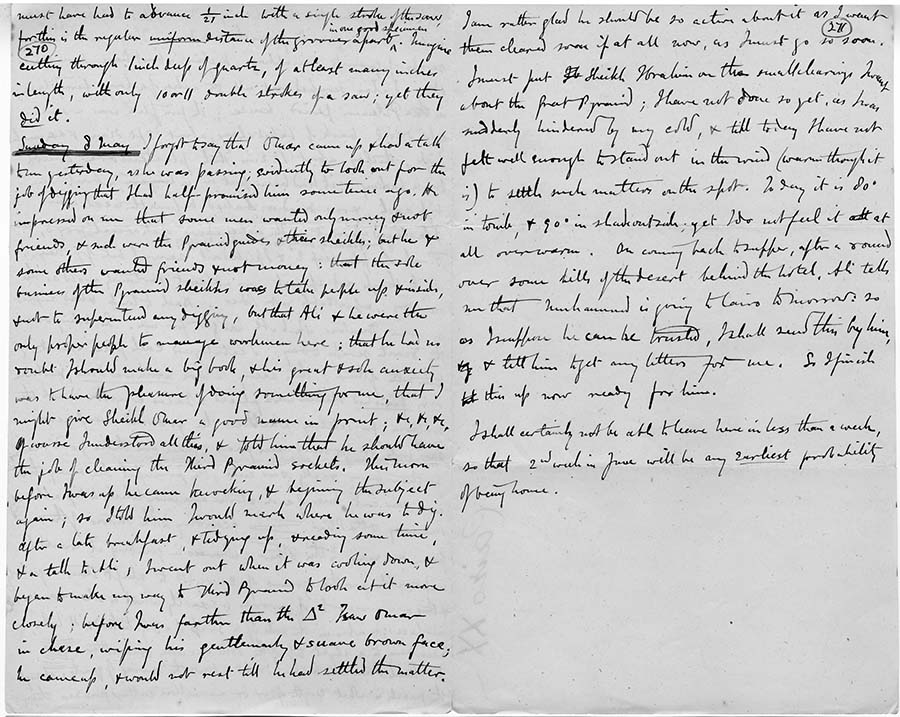 must have had to advance 1/21 inch with a single stroke of the saw
in one good specimen
for this is the regular uniform distance of the grooves apart ^. Imagine
270
cutting through 1 inch deep of quartz, of at least many inches
in length, with only 10 or 11 double strokes of a saw; yet they
did it.
Sunday 8 May I forgot to say that Omar came up & had a talk
yesterday, as he was passing; evidently to look out for the
job of digging that I had half-promised him some time ago. He
impressed on me that some men wanted only money & not
friends, & such were the Pyramid guides & their sheikhs; but he &
some others wanted friends & not money: that the sole
business of the Pyramid sheikhs was to take people up & inside,
& not to superintend any digging, but that Ali & he were the
only proper people to manage workmen here; that he had no
doubt I should make a big book, & his great & sole anxiety
was to have the pleasure of doing something for me, that I
might give Sheikh Omar a good name in print; &c, &c, &c.
Of course I understood all this, & told him that he should have
the job of cleaning the Third Pyramid sockets. This morn
before I was up he came knocking, & begining the subject
again; so I told him I would mark where he was to dig.
After a late breakfast, & tidying up, & reading some time,
& a talk to Ali, I went out when it was cooling down, &
began to make my way to Third Pyramid to look at it more
closely; before I was farther than the Δ² I saw Omar
in chase, wiping his gentlemanly & suave brown face;
he came up, & would not rest till he had settled the matter.
I am rather glad he should be so active about it as I want
271
them cleared soon if at all now, as I must go so soon.
I must put Sheikh Ibrahim on the small clearings I want
about the Great Pyramid; I have not done so yet, as I was
suddenly hindered by my cold, & till today I have not
felt well enough to stand out in the wind (warm though it
is) to settle such matters on the spot. Today it is 80°
in tomb, & 90° in shade outside; yet I do not feel it at
all overwarm. On coming back to supper, after a round
over some hills of the desert behind the hotel, Ali tells
me that Muhammed is going to Cairo tomorrow: so
as I suppose he can be trusted, I shall send this by him,
& tell him to get any letters for me. So I finish
this up now ready for him.
I shall certainly not be able to leave here in less than a week,
so that 2nd week in June will be any earliest probability
of being home.